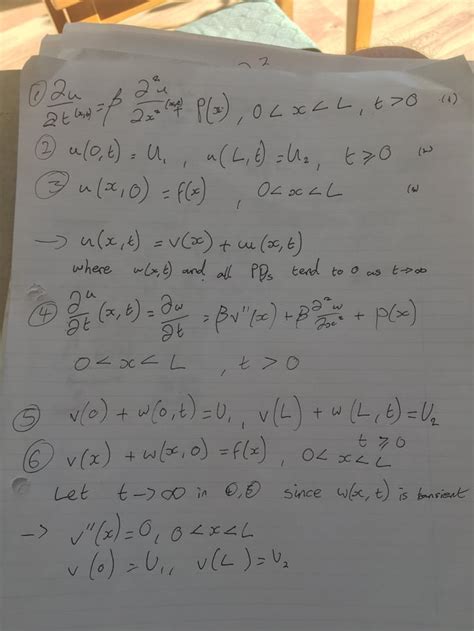 ① ∂u/∂t (x,t) = β ∂²u/∂x² (x,t) + P(x), 0 < x < L, t > 0 (1)
② u(0,t) = U₁, u(L,t) = U₂, t ⩾ 0
③ u(x,0) = f(x), 0 < x < L
→ u(x,t) = v(x) + w(x,t)
where w(x,t) and all PDs tend to 0 as t→∞
④ ∂u/∂t (x,t) = ∂w/∂t = βv''(x) + β ∂²w/∂x² + p(x)
0 < x < L, t > 0
⑤ v(0) + w(0,t) = U₁, v(L) + w(L,t) = U₂
t ⩾ 0
⑥ v(x) + w(x,0) = f(x), 0 < x < L
Let t → ∞ in since w(x,t) is transient
→ v''(x) = 0, 0 < x < L
v(0) = U₁, v(L) = U₂